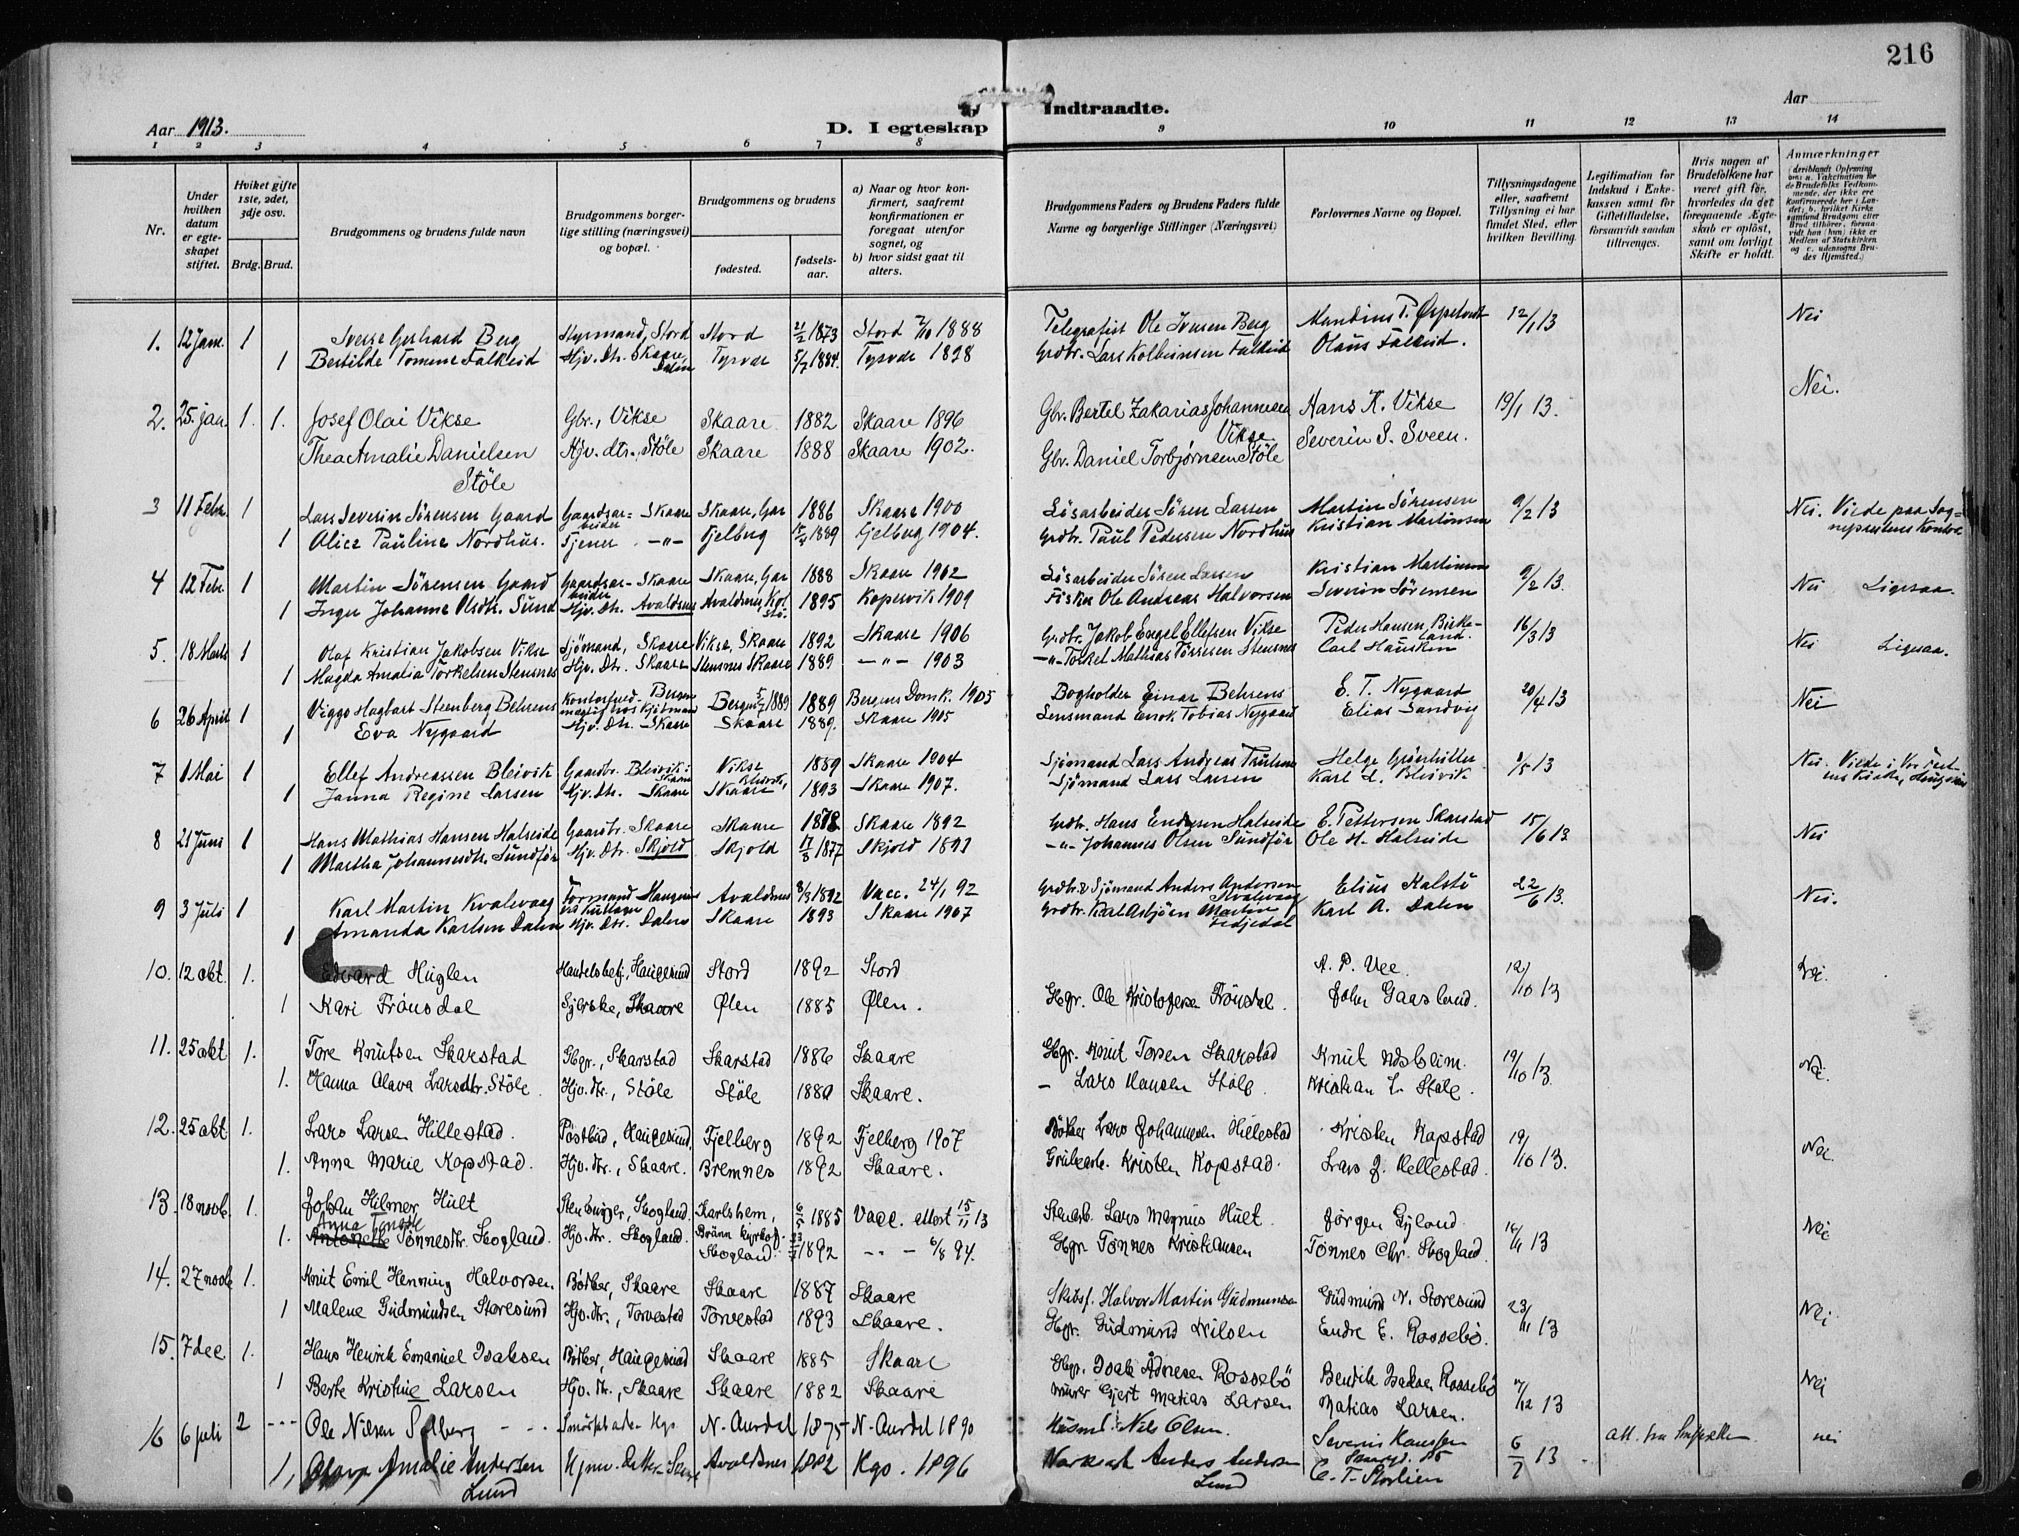 216
Aar 1913.
D. I egteskap
Indtraadte.
Aar
1 2 3 4 5 6 7 8 9 10 11 12 13 14
Nr.
Under hvilken datum er egteskapet stiftet.
Hviket gifte 1ste, 2det, 3dje osv.
Brdg. Brud.
Brudgommens og brudens fulde navn
Brudgommens borgerlige stilling (næringsvei) og bopæl.
Brudgommens og brudens
fødested.
fødselsaar.
a) Naar og hvor konfirmert, saafremt konfirmationen er foregaat utenfor sognet, og
b) hvor sidst gaat til alters.
Brudgommens Faders og Brudens Faders fulde Navne og borgerlige Stillinger (Næringsvei)
Forlovernes Navne og Bopæl.
Tillysningsdagene eller, saafremt Tillysning ei har fundet Sted, efter hvilken Bevilling.
Legitimation for Indskud i Enkekassen samt for Giftetilladelse, forsaavidt saadan tiltrænges.
Hvis nogen af Brudefolkene har været gift før, hvorledes da det foregaaende Ægteskab er opløst, samt om lovligt Skifte er holdt.
Anmærkninger
(deriblandt Oplysning om: a. Vakcination for de Brudefolks Vedkommende, der ikke ere konfirmerede her i Landet; b. hvilket Kirkesamfund Brudgom eller Brud tilhører, forsaavidt han (hun) ikke er Medlem af Statskirken og c. udensogns Brudes Hjemsted.)
1. 12 Jan. 1 Sverre Gerhard Berg Styrmand, Stord Stord 21/2 1873 Stord 7/10 1888 Telegrafist Ole Iversen Berg 12/1 13 Nei
1 Bertilde Tomine Falkeid Hjv. Dtr. Skaare, Dalen Tysvær 5/7 1884. Tysvær 1898 Grdbr. Lars Kolbeinsen Falkeid Olaus Falkeid.
2. 25. jan. 1. 1. Josef Olai Vikse Gbr., Vikse Skaare 1882 Skaare 1896 Gbr. Bertel Zakarias Johannesen Vikse Hans K. Vikse 19/1 13. Nei.
Thea Amalie Danielsen Støle Hjv. dtr., Støle Skaare 1888 Skaare 1902. Gbr. Daniel Torbjørnsen Støle Severin S. Sveen.
3 11 Febr. 1 Lars Severin Sørensen Gaard Gaardsarbeider Skaare Skaare, Gar 1886 Skaare 1900 Løsarbeider Søren Larsen Martin Sørensen 9/2 13 Nei. Viede paa Sogneprestens Kontor
1 Alice Pauline Nordhus. Tjener -"- Fjelberg 1889 Fjelberg 1904. Grdbr. Paul Pedersen Nordhus Kristian Martinsen
4 12 Febr. 1 Martin Sørensen Gaard Gaardsarbeider Skaare Skaare, Gar 1888 Skaare 1902 Løsarbeider Søren Larsen Kristian Martinsen 9/2 13. Nei Ligesaa.
1 Inger Johanne Olsdtr. Sund Hjv. Dtr. Avaldsnes Avaldsnes 1895 Kopervik 1909 Fisker Ole Andreas Halvorsen Severin Sørensen
5. 18 Marts 1 Olaf Kristian Jakobsen Vikse Sjömand, Skaare Vikse, Skaare 1892 Skaare 1906 Grdbr. Jakob Engel Ellefsen Vikse Peder Hansen, Birkeland. 16/3 13 Nei Ligesaa.
1 Magda Amalia Torkelsen Stensnes Hjv. Dtr. Skaare Stensnes Skaare 1889 -"- 1903 -"- Torkel Mathias Tørresen Stensnes
6 26 April 1 Viggo Hagbart Stemberg Behrens Bergen Bergen 1889 1889 Bergens Domk. 1905 Bogholder Einar Behrens E. T. Nygaard 20/4 13 Nei
1 Eva Nygaard Hjv. Dtr. Skaare Skaare 1889. Skaare 1905 Lensmand Enok Tobias Nygaard Elias Sandvig
7 1 Mai 1 Ellef Andreassen Bleivik Gaardbr. Bleivik i Skaare Vikse 1889 Skaare 1904 Sjømand Lars Andreas Helge Grönhilter 1/5 13 Nei.
1 Janna Regine Larsen Hjv. Dtr. Skaare Bleivik, Skaare 1893 Skaare 1907. Sjømand Lars Larsen Karl L. Bleivik
8 21 Juni 1 Hans Mathias Hansen Halseide Gaardbr. Skaare Skaare 1878 Skaare 1892 Grdbr. Hans Endresen Halseide E. Pettersen Skarstad 15/6 13 Nei
1 Martha Johannesdtr. Sundfør Hjv. Dtr. Skjold Skjold 17/3 1877 Skjold 1891 -"- Johannes Olsen Sundfør Ole H. Halseide
9 3 Juli 1 Karl Martin Kvalevaag Avaldsnes 8/3 1892 Vacc. 24/1 92 Grdbr. & Sjömand Anders Andersen Kvalevaag Elius Kalstö 22/6 13. Nei.
1 Amanda Karlsen Dalen Hjv. Dtr. Dalen Skaare 1893 Skaare 1907 Grdbr. Karl Asbjörn Martin Karl A. Dalen
10. 12 okt. 1. Edvard Huglen Handelsbetj. Haugesund Stord 1892 Stord A. P. Vee. 12/10 13 Nei.
1 Kari Frönsdal Syerske, Skaare Ølen 1885 Ølen. Gbgr. Ole Kristofersen Frönsdal. John Gaaslund.
11. 25 okt 1. Tore Knutsen Skarstad Gbgr., Skarstad Skarstad 1886 Skaare Gbgr. Knut Torsen Skarstad Knut Udsheim. 19/10 13. Nei.
1. Hanna Olava Larsdtr. Støle Hjv. dtr., Støle Støle 1880 Skaare. - Lars Hansen Støle Kristian L. Støle.
12. 25 okt 1. Lars Larsen Hillestad. Postbud, Haugesund Fjelberg 1892 Fjelberg 1907 Bøker Lars Johannesen Hillestad Kristen Kopstad 19/10 13. Nei
1. Anna Marie Kopstad. Hjv. dtr., Skaare. Bremnes 1892 Skaare. Grubearb. Kristen Kopstad. Lars J. Hellestad.
13. 18 novb. 1. Johan Hilmer Hult Stenhugger, Skogland. Karlshem, 6/5 1885 Vacc. attest 15/11 13 Stenarb. Lars Magnus Hult. Jørgen Eyland. 16/11 13 Nei
1. Anna Tonette Antonette Tønnesdtr. Skogland. Hjv. dtr. Skogland. Skogland. 1892 -"- 6/8 94. Gbgr. Tönnes Kristiansen Tönnes Chr. Skogland.
14. 27 novb 1. Knut Emil Henning Halvorsen Bødker, Skaare Skaare 1887 Skaare Skibsf. Halvor Martin Gudmundsen Gudmund N. Storesund 23/11 13 Nei
1 Malene Gudmundsen Storesund Hjv. dtr., Torvestad Torvestad 1893 Skaare. Gbgr. Gudmund Nilsen Endre E. Rossebø.
15. 7 dec 1. Hans Henrik Emanuel Isaksen Bødker, Haugesund Skaare 1885 Skaare Gbgr. Isak Ådnesen Rossebö Bendik Isaksen Rossebö 7/12 13 Nei
1 Berte Kristine Larsen Hjv. dtr., Skaare Skaare 1882 Skaare Murer Gjert Matias Larsen Matias Larsen.
16 6 juli 2 Ole Nilsen Solberg N. Aurdal 1875 N. Aurdal 1890 Husmd. Nils Olsen. Severin Hansen 6/7 13. nei
1, Olava Amalie Andersen Lund Avaldsnes 1882 Hgs. 1896 Anders Andersen Lund C. T. Storlien